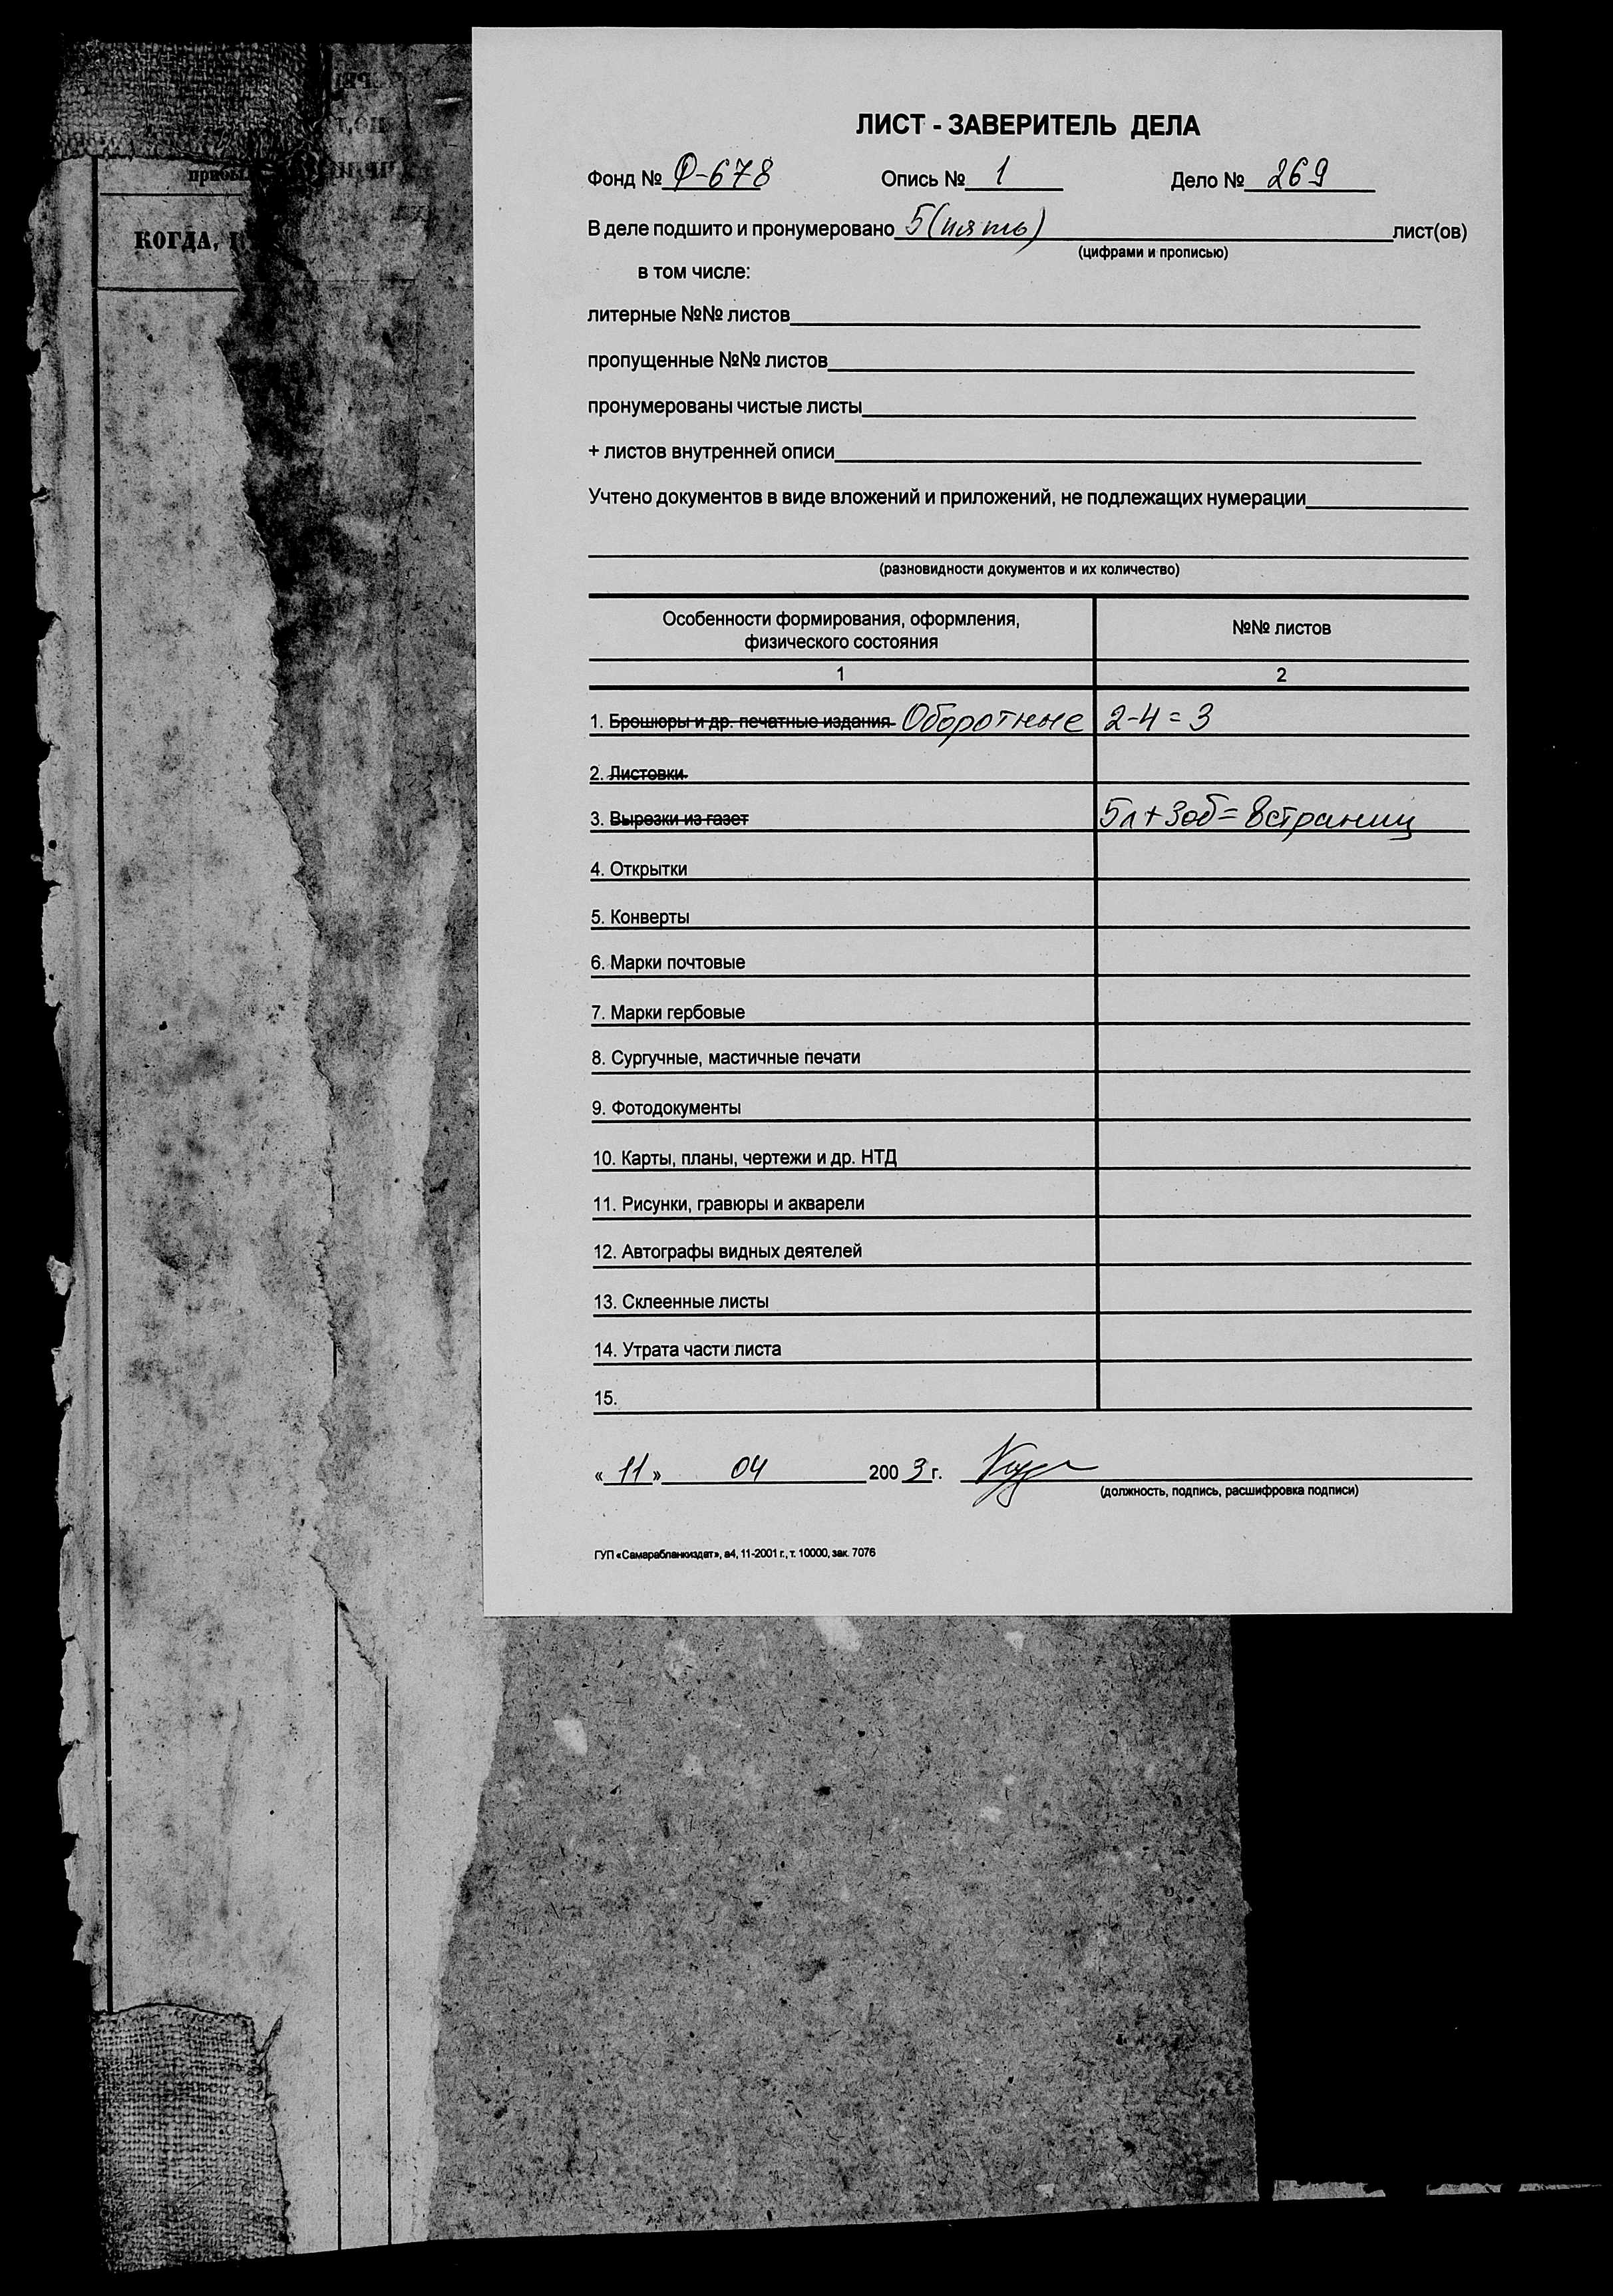 прибы
КОГДА,
ЛИСТ - ЗАВЕРИТЕЛЬ ДЕЛА
Фонд № Ф-678 Опись № 1 Дело № 269
В деле подшито и пронумеровано 5 (пять) лист(ов)
(цифрами и прописью)
в том числе:
литерные №№ листов
пропущенные №№ листов
пронумерованы чистые листы
+ листов внутренней описи
Учтено документов в виде вложений и приложений, не подлежащих нумерации
(разновидности документов и их количество)
Особенности формирования, оформления,
физического состояния
№№ листов
1 2
1. Брошюры и др. печатные издания Оборотные 2-4 = 3
2. Листовки
3. Вырезки из газет 5л + 3об = 8 страниц
4. Открытки
5. Конверты
6. Марки почтовые
7. Марки гербовые
8. Сургучные, мастичные печати
9. Фотодокументы
10. Карты, планы, чертежи и др. НТД
11. Рисунки, гравюры и акварели
12. Автографы видных деятелей
13. Склеенные листы
14. Утрата части листа
15.
« 11 » 04 200 3 г.
(должность, подпись, расшифровка подписи)
ГУП «Самарабланкиздат», а4, 11-2001 г., т. 10000, зак. 7076